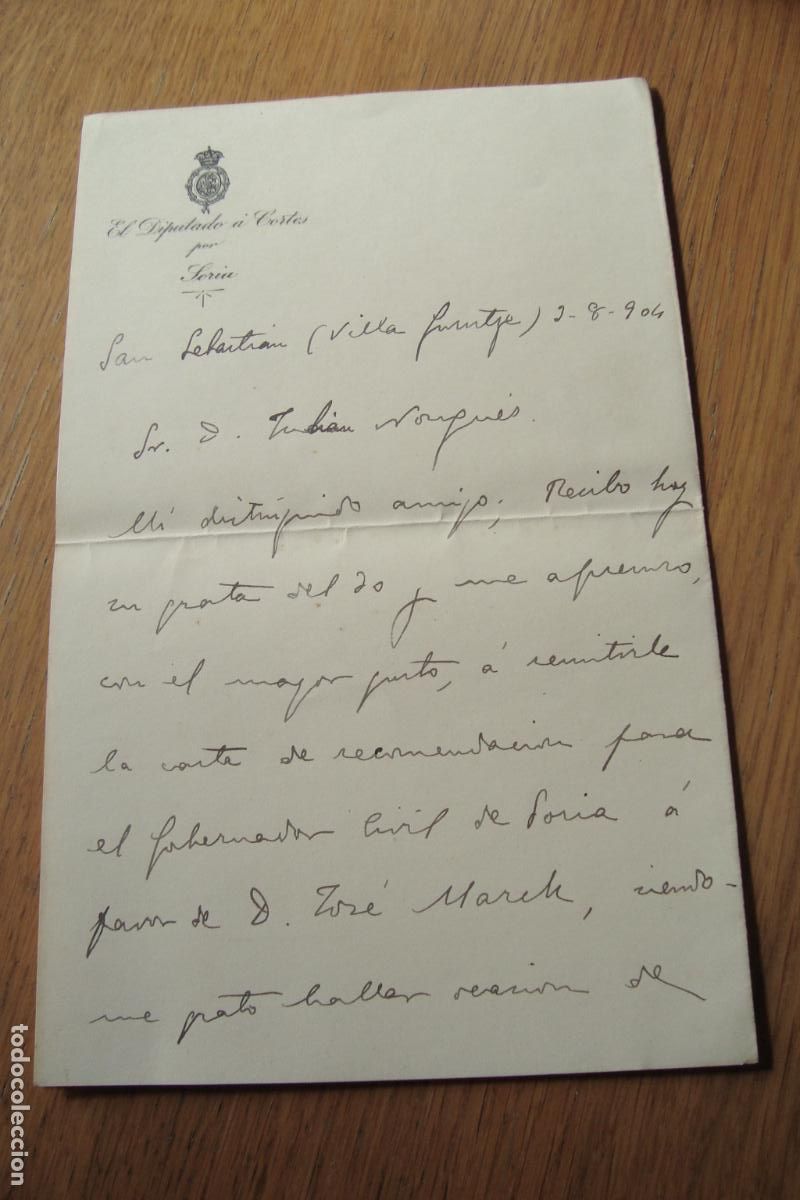 El Diputado á Cortes
por
Soria
San Sebastián (Villa 2-8-904
Sr. D. Julian Nougués.
Mi distinguido amigo; Recibo hoy
su grata del 30 y me apresuro,
con el mayor gusto, á remitirle
la carta de recomendacion para
el Gobernador Civil de Soria á
favor de D. José March, siendo-
me grato hallar ocasion de
todocoleccion
todocoleccion